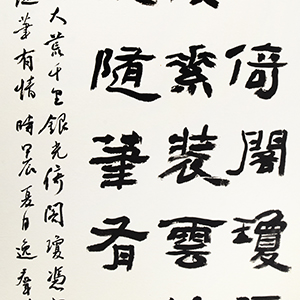 倚閣瓊
素裝雲
隨筆有
大荒千里銀光倚閣瓊憑
筆有情時甲辰夏日逸羣